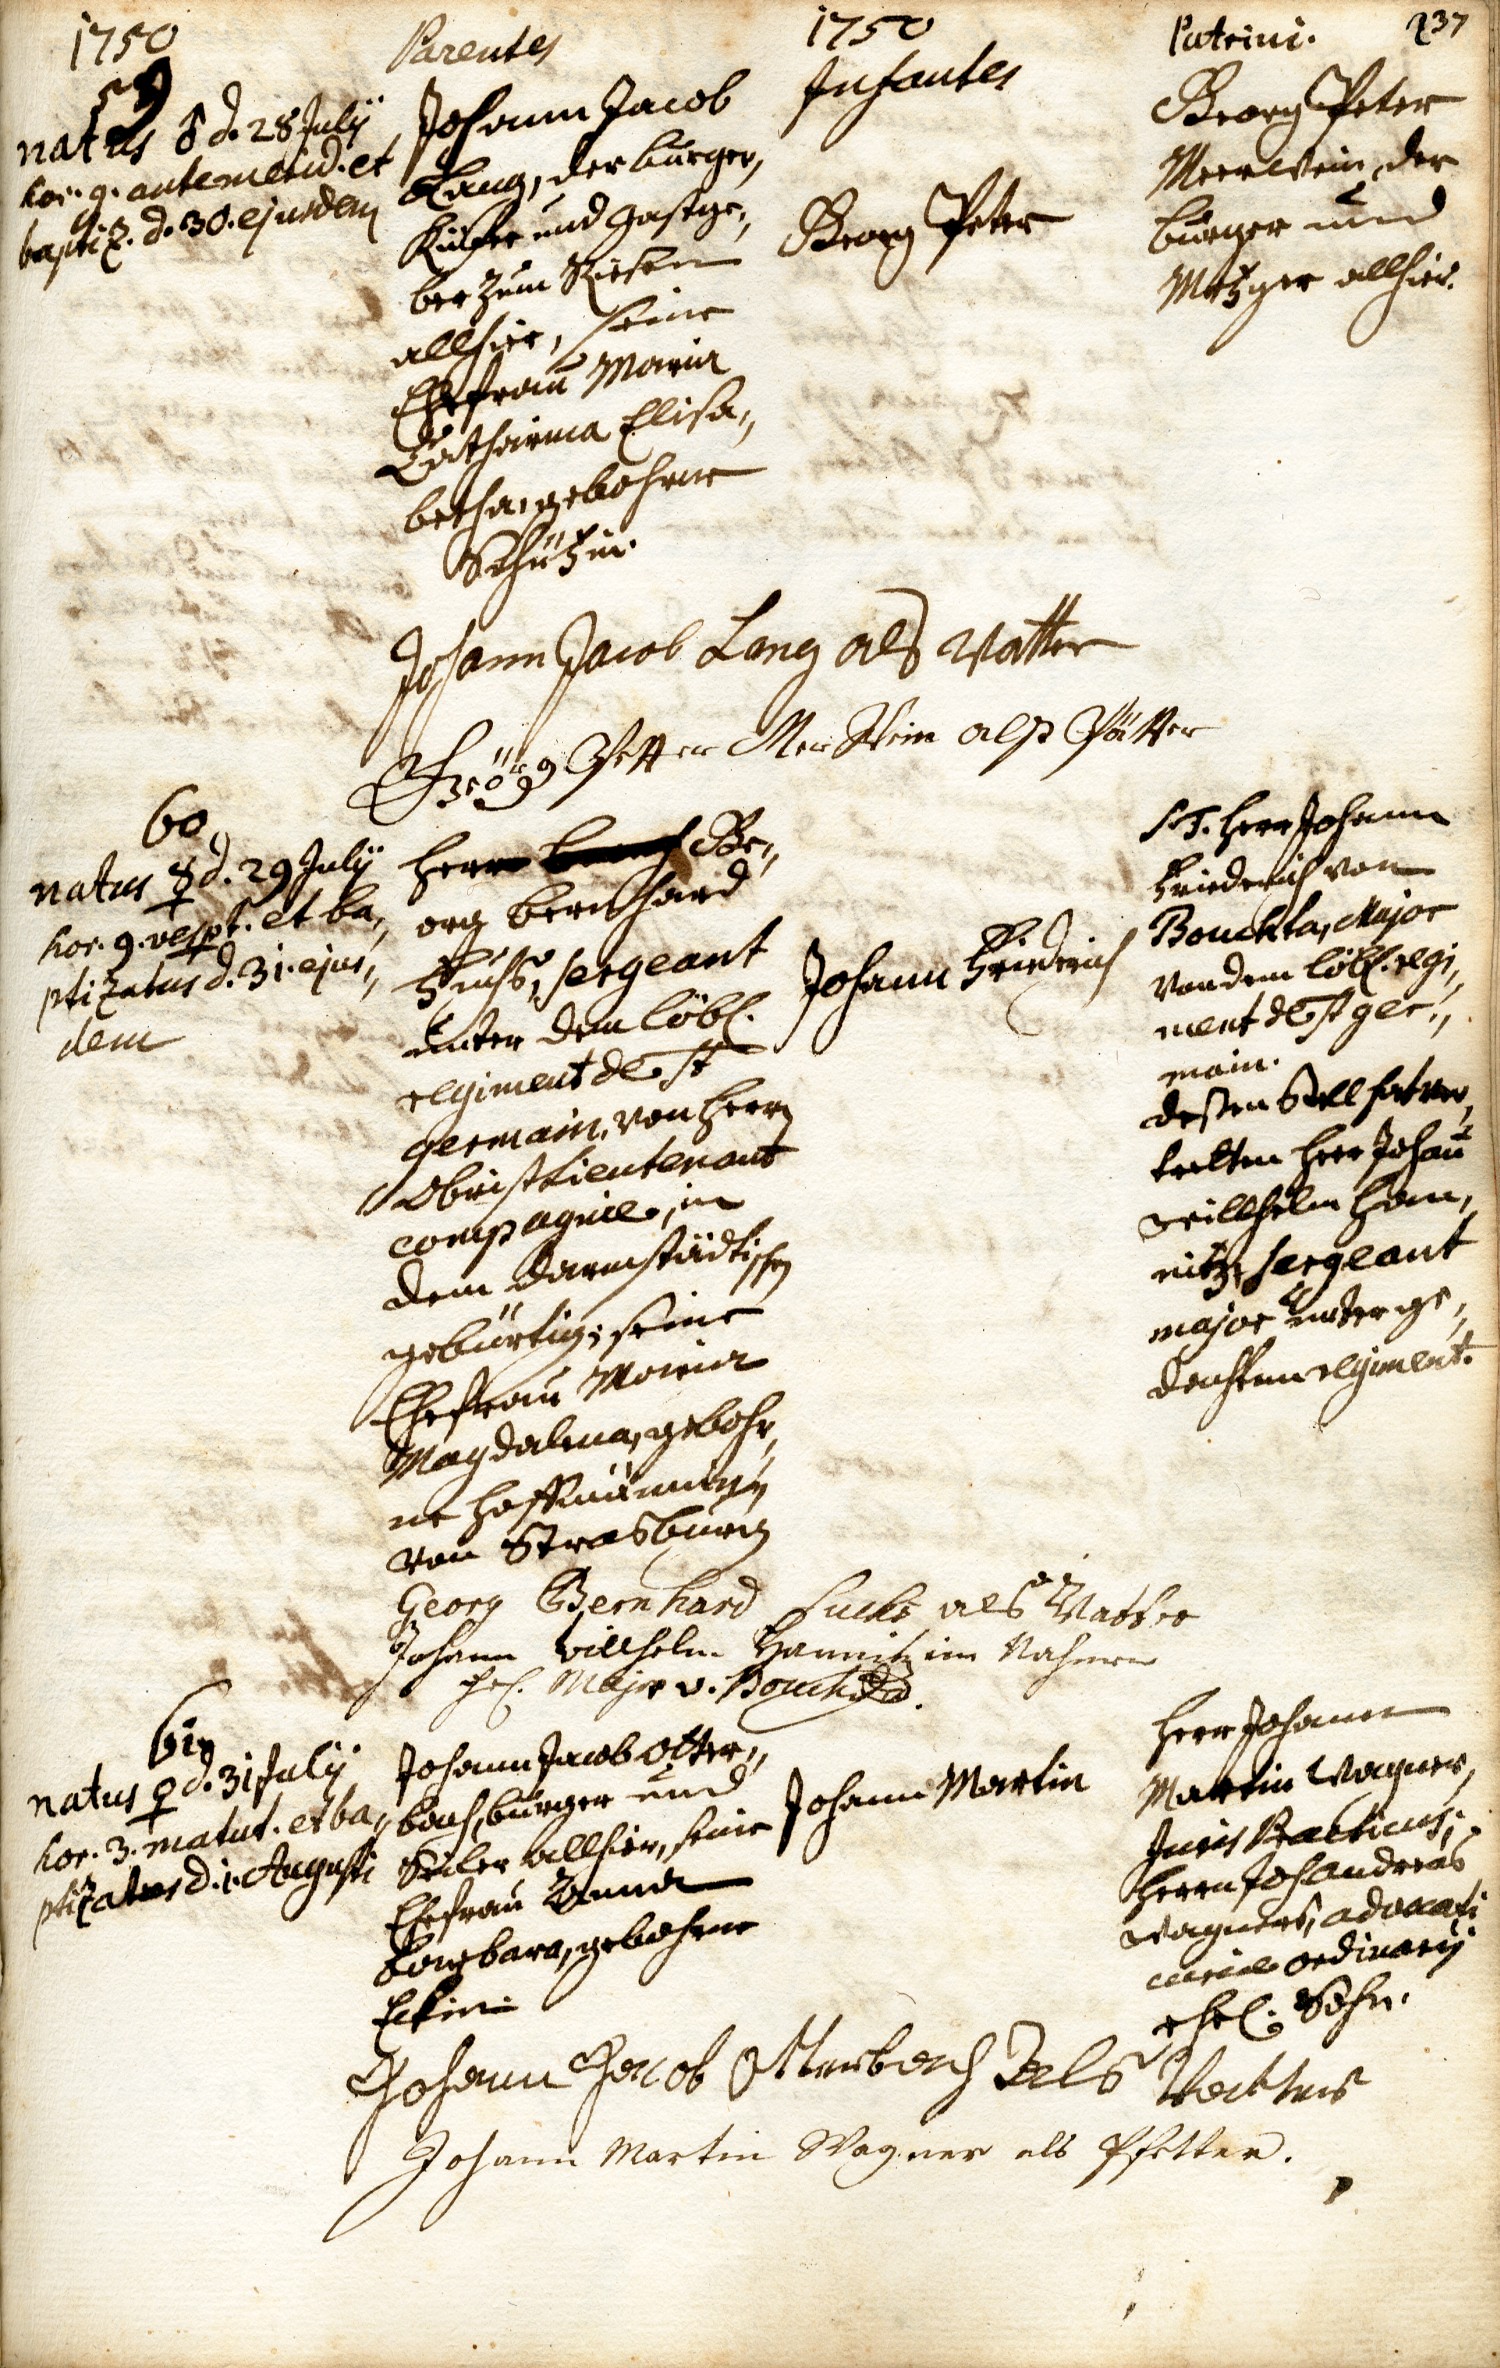 1750
Parentes
1750
Infantes
Patrini.
237
59
natus ♂ d. 28 July
hor. 9. antemerid. et
baptiz. d. 30. ejusdem
Johann Jacob
Lang, der burger,
Küfer und Gastge„
ber zum Riesen
allhier, seine
Ehefrau Maria
Catharina Elisa„
betha, gebohrne
Schützin.
Georg Peter
Georg Peter
Meerwein, der
burger und
Metzger allhier.
Johann Jacob Lang als Vatter
Geörg Petter Mer Wein alß Pätter
60,
natus ☿ d. 29 July
hor. 9. vespt. et ba„
ptizatus d. 31. ejus„
dem
Herr Ge„
org bernhard
Fuchs, sergeant
unter dem löbl.
regiment de St
germain, von Herrn
Obrist Lieutenant
compagnie, in
dem Darmstädtischen
gebürtig; seine
Ehefrau Maria
Magdalena, gebohr„
ne Hoffmännin
von Strasburg
Johann Friedrich
S. T. Herr Johann
Friederich von
Bouckla, Major
von dem löbl. regi„
ment de St ger„
main.
deßen Stell hat ver„
tretten Herr Johan̄
Willhelm Han„
nitz, sergeant
major unter ge„
dachtem regiment.
Georg Bernhard Fuchs als Vatter
Johann Willhelm Hannitz im Nahmen
H. Major v. Bouckla.
61,
natus ♀ d. 31 July
hor. 3. matut. et ba„
ptizatus d. 1. Augusti
Johann Jacob Otter„
bach, burger und
Seiler allhier, seine
Ehefrau Anna
barbara, gebohrne
Eckin.
Johann Martin
Herr Johann
Martin Wagner,
Juris Practicus,
Herrn Joh andreas
Wagners, advocati
curiae ordinarii
ehel. Sohn.
Johann Jacob Otterbach Als Vatter
Johann Martin Wagner als Pfetter.